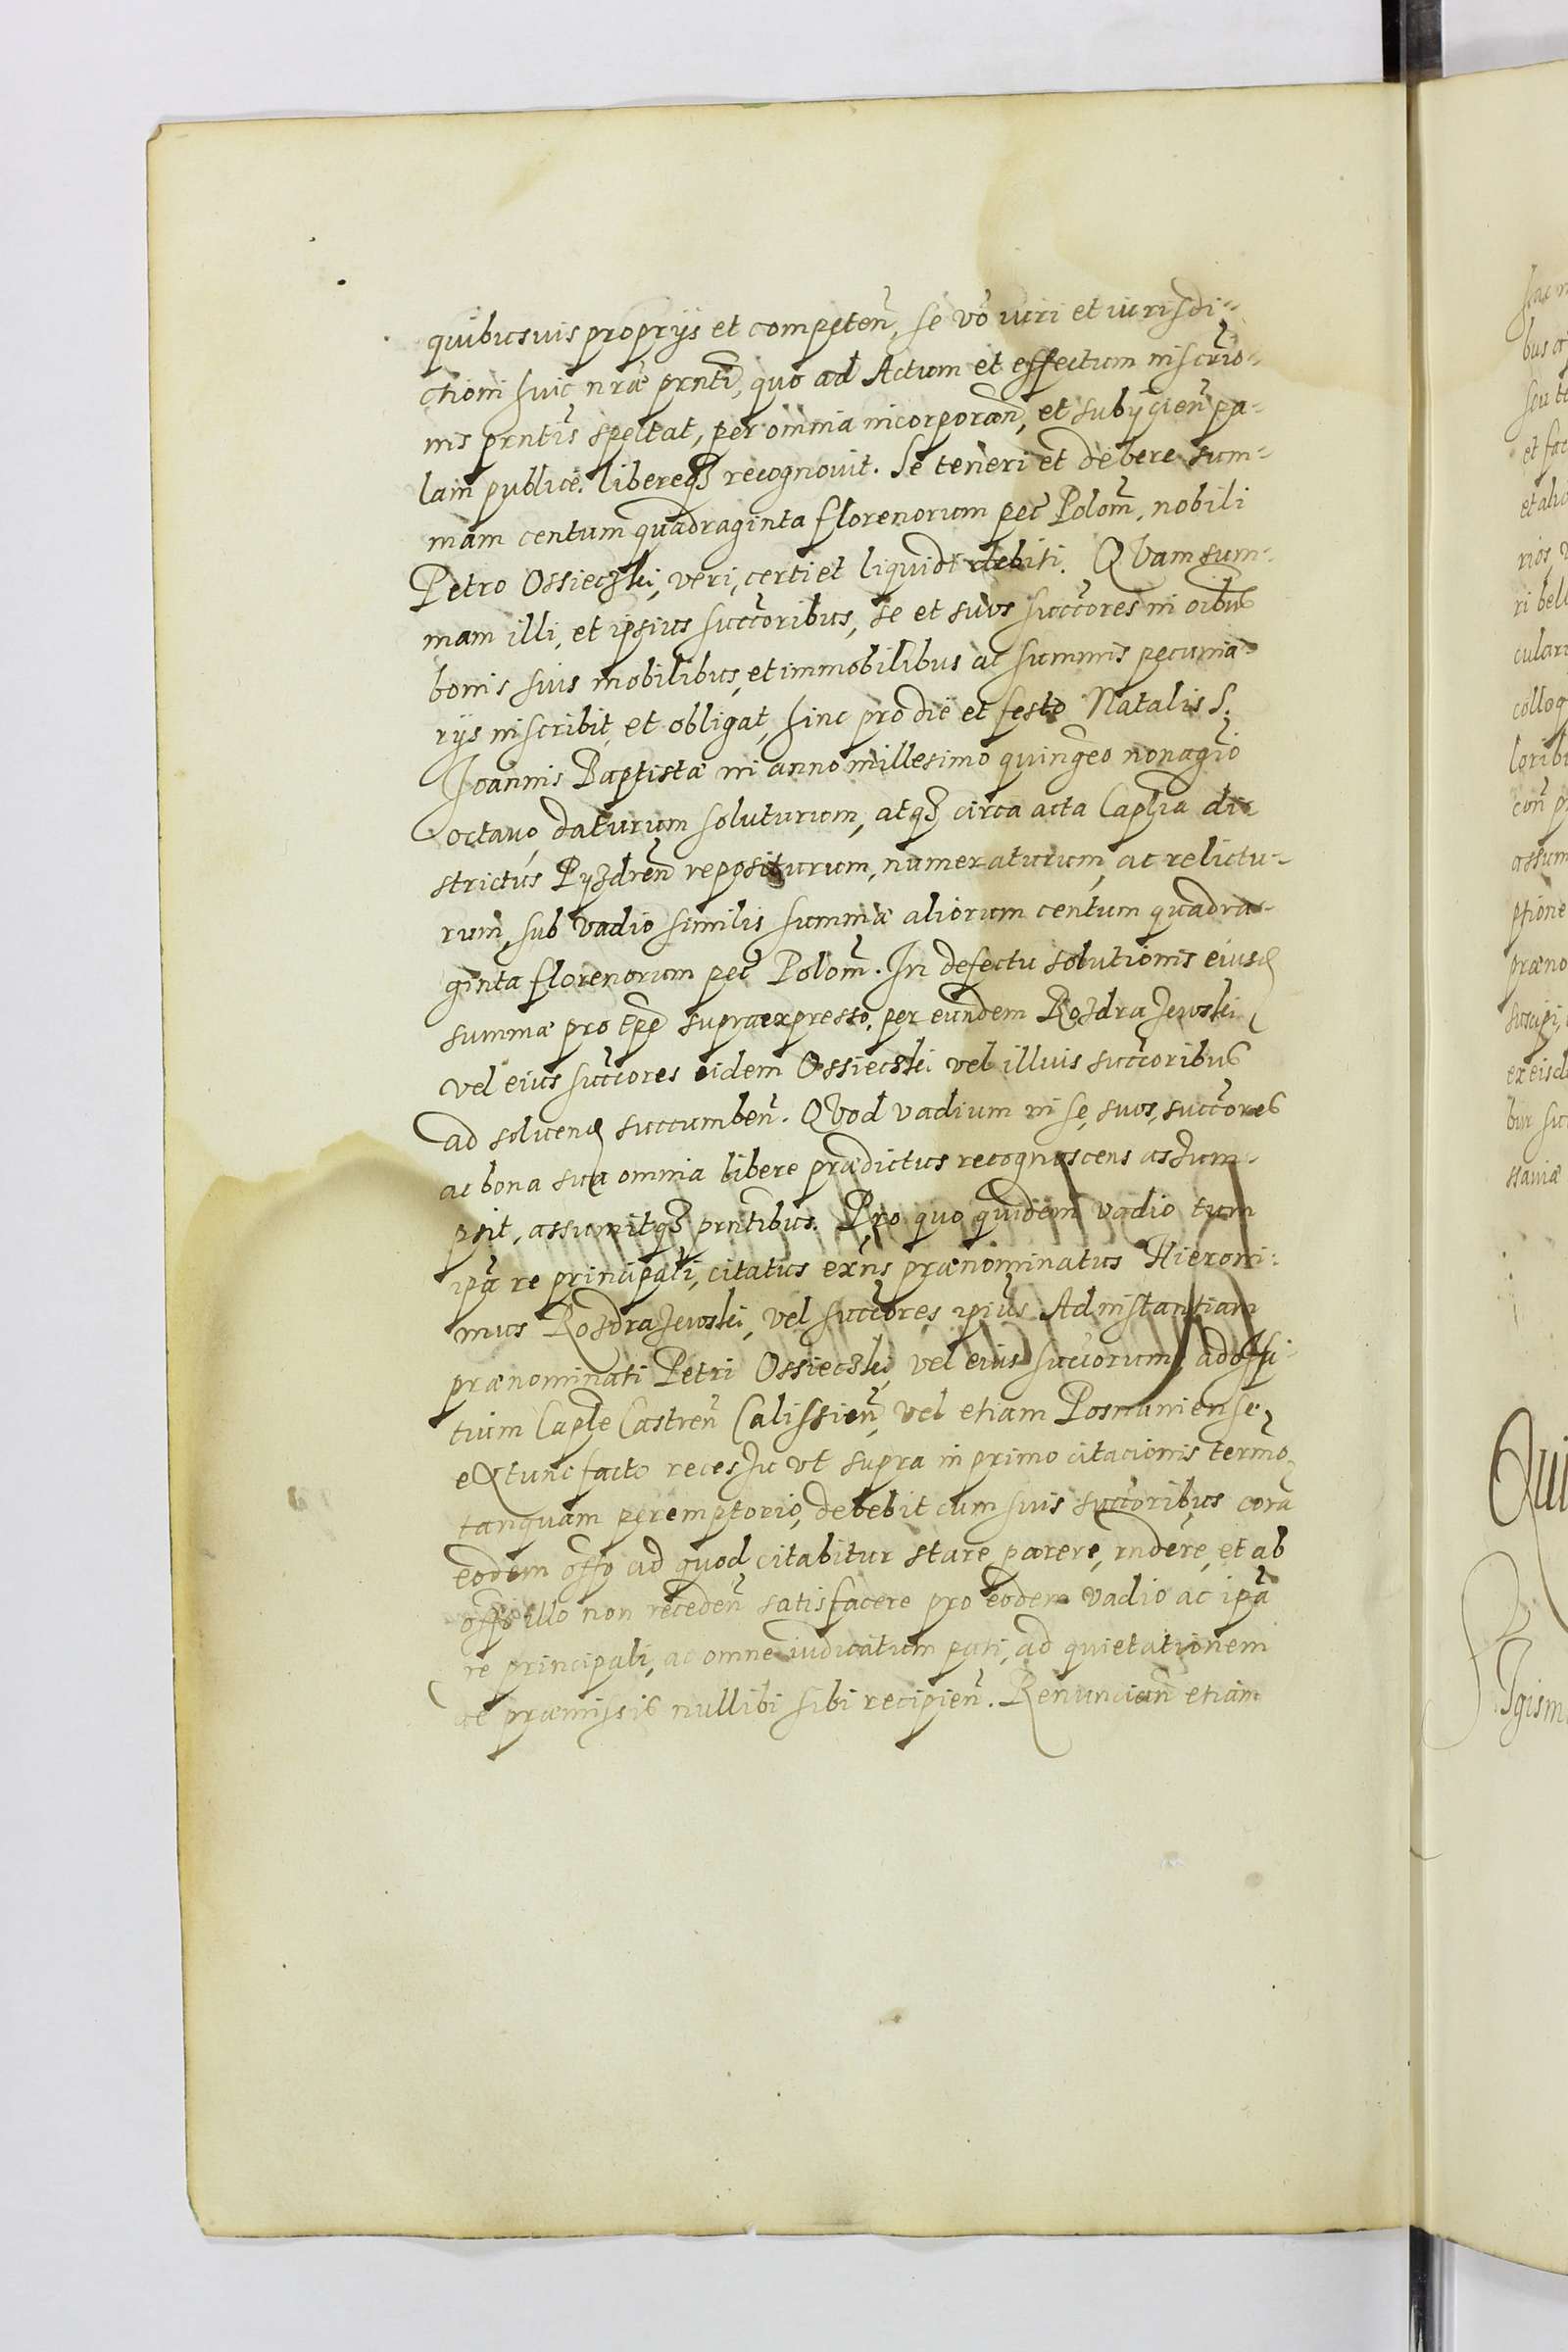 quibusvis proprijs et competen̄, se vō iuri et iurisdi-
ctioni huic nr̄æ prntī, quo ad Actum et effectum inscrio-
nis prntīs spectat, per omnia incorporan̄, et subijcien̄ pa-
lam publice libereqз recognovit. Se teneri et debere sum-
mam centum quadraginta florenorum pec̄ Polon̄, nobili
Petro Ossieczki, veri, certi et liquidi debiti. QVam sum-
mam illi, et ipsius succ̄oribus, se et suos succ̄ores in oībus
bonis suis mobilibus, et immobilibus ac summis pecunia-
rijs inscribit, et obligat, hinc pro die et festo Natalis S.
Joannis Baptistæ in anno millesimo quingēo nonagīo
octavo, daturum soluturum, atqз circa acta Capl̄ia di-
strictus Pyzdren̄ repositurum, numeraturum, ac relictu-
rum, sub vadio similis summæ aliorum centum quadra-
ginta florenorum pec̄ Polon̄. In defectu solutionis eiusd
summæ pro tp̄e supraexpresso, per eundem Rozdrazewski
vel eius succ̄ores eidem Ossieczki vel illius succ̄oribus
ad soluend succumben̄. QVod vadium in se, suos, succ̄ores
ac bona sua omnia libere prædictus recognoscens assum-
psit, assumitqз prntībus. Pro quo quidem vadio tum
ipā re principali, citatus exn̄s prænominatus Hieroni-
mus Rozdrazewski, vel succ̄ores ipīus Ad instantiam
prænominati Petri Ossieczki, vel eius succ̄orum, ad offi-
tium Capl̄e Castren̄ Calissien̄, vel etiam Posnaniense,
extunc facto recessu vt supra in primo citacionis term̄o
tanquam peremptorio, debebit cum suis succ̄oribus corā
eodem offo ad quod citabitur stare, parere, rn̄dere, et ab
offo illo non receden̄ satisfacere pro eodem vadio ac ipā
re principali, ac omne iudicatum pati, ad quietationem
de præmissis nullibi sibi recipien̄. Renuncian̄ etiam